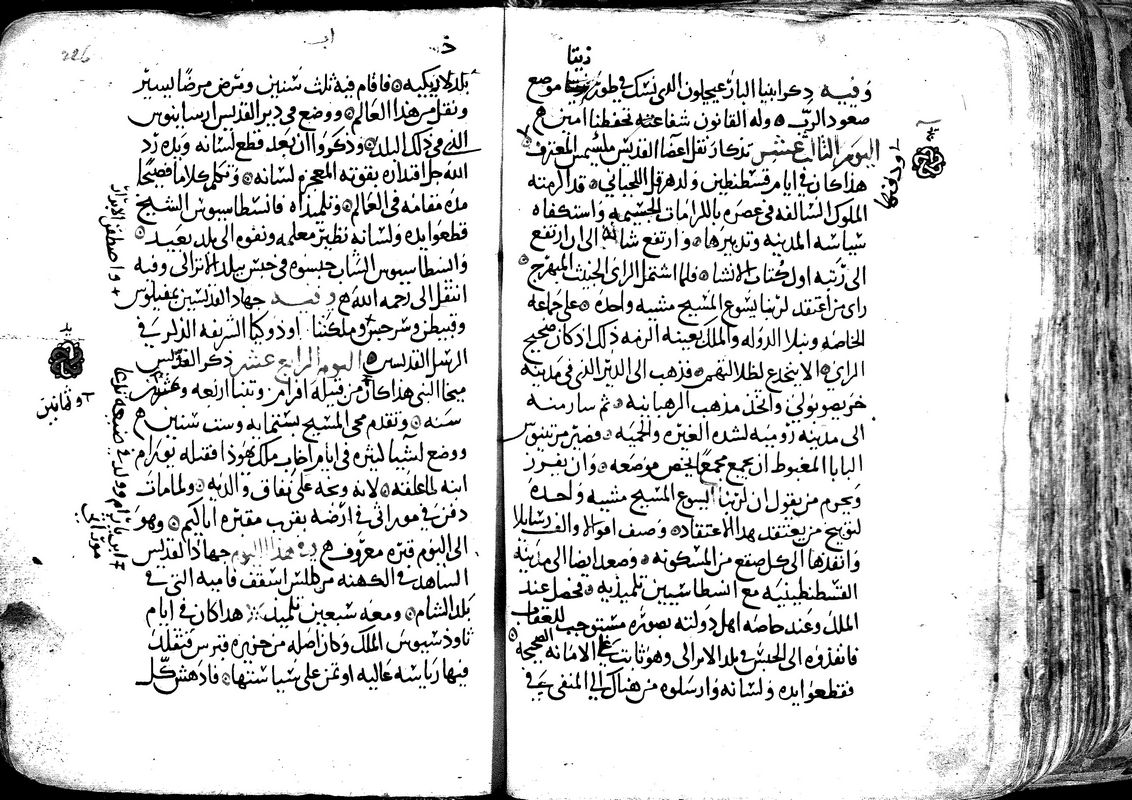 وفيه ذكر ابينا البار عيجلون الذى نسك فى طور موضع
صعود الرب وله القانون شفاعته تحفظنا امين
اليوم الثالث عشر تذكار نقل اعضا القديس مكسيمس المعترف
هذا كان فى ايام قسطنطين ولد هرقل اللحيانى قد اكرمته
الملوك السالفه فى عصره بالكرامات الجسيمه واستكفاه
سياسه المدينه وتدبيرها وارتفع شانه الى ان ارتفع
الى رتبه اول كتاب الانشا فلما اشتمل الراى الخبيث المبهرج
راى من اعتقد لربنا يسوع المسيح مشيه واحده على جماعه
الخاصه ونبلا الدوله والملك بعينه الزمه ذلك اذ كان صحيح
الراى الا ينخدع لظلالتهم فذهب الى الدير الذى فى مدينه
خريصوبولى واتخذ مذهب الرهبانيه ثم سار منه
الى مدينه روميه لشده الغيره والحميه وصير مرتينوس
البابا المغبوط ان يجمع مجمعا يخص موضعه وان يفرز
ويحرم من يقول ان لربنا اليسوع المسيح مشيه واحده
لتوبيخ من يعتقد بهذا الاعتقاد وصنف اقواله والف رسايلا
وانفذها الى كل صقع من المسكونه وصعد ايضا الى مدينة
القسطنطينيه مع انسطاسيين تلميذيه فحصل عند
الملك وعند خاصه اهل دولته بصوره مستوجب للعقاب
فانفذوه الى الحبس فى بلد الابرالى وهو ثابت على الامانه الصحيحه
فقطعوا يده ولسانه وارسلوه من هناك الى المنفى فى
بلد لازيكيه فاقام فيه ثلث سنين ومرض مرضا يسير
ونقل من هذا العالم ووضع فى دير القديس ارسانيوس
الذى فى ذلك البلد وذكروا ان بعد قطع لسانه ويده رد
الله جل اقتداره بقوته المعجزه لسانه وتكلم كلاما فصيحا
مده مقامه فى العالم وتلميذاه فانسطاسيوس الشيخ
قطعوا يده ولسانه نظير معلمه ونفوه الى بلد بعيد
وانسطاسيوس الشاب حبسوه فى حبس ببلد الانزالى وفيه
انتقل الى رحمه الله وفيه جهاد القديسين بمفيلوس
وقبيطن وسرجيس وملكتنا اودوكيا الشريفه الذكر فى
الرسل القديسين اليوم الرابع عشر ذكر القديس
ميخا النبى هذا كان من قبيله افرام وتنبا اربعه وعشرين
سنه وتقدم مجى المسيح بستمايه وست سنين
ووضع لسيا ليتره فى ايام اخاب ملك يهوذا فقتله يورام
ابنه لما علقه لانه وبخه على نفاق والديه ولما مات
دفن فى موراثى فى ارضه بقرب مقبره اياكيم وهو
الى اليوم قبره معروف وفى هذا اليوم جهاد القديس
الشاهد فى الكهنه مركلس اسقف فاميه التى فى
بلد الشام ومعه سبعين تلميذ هذا كان فى ايام
ثاوذسيوس الملك وكان اصله من جزيره قبرس فتقلد
فيها رياسه عاليه اوتمن على سياستها فادهش كل